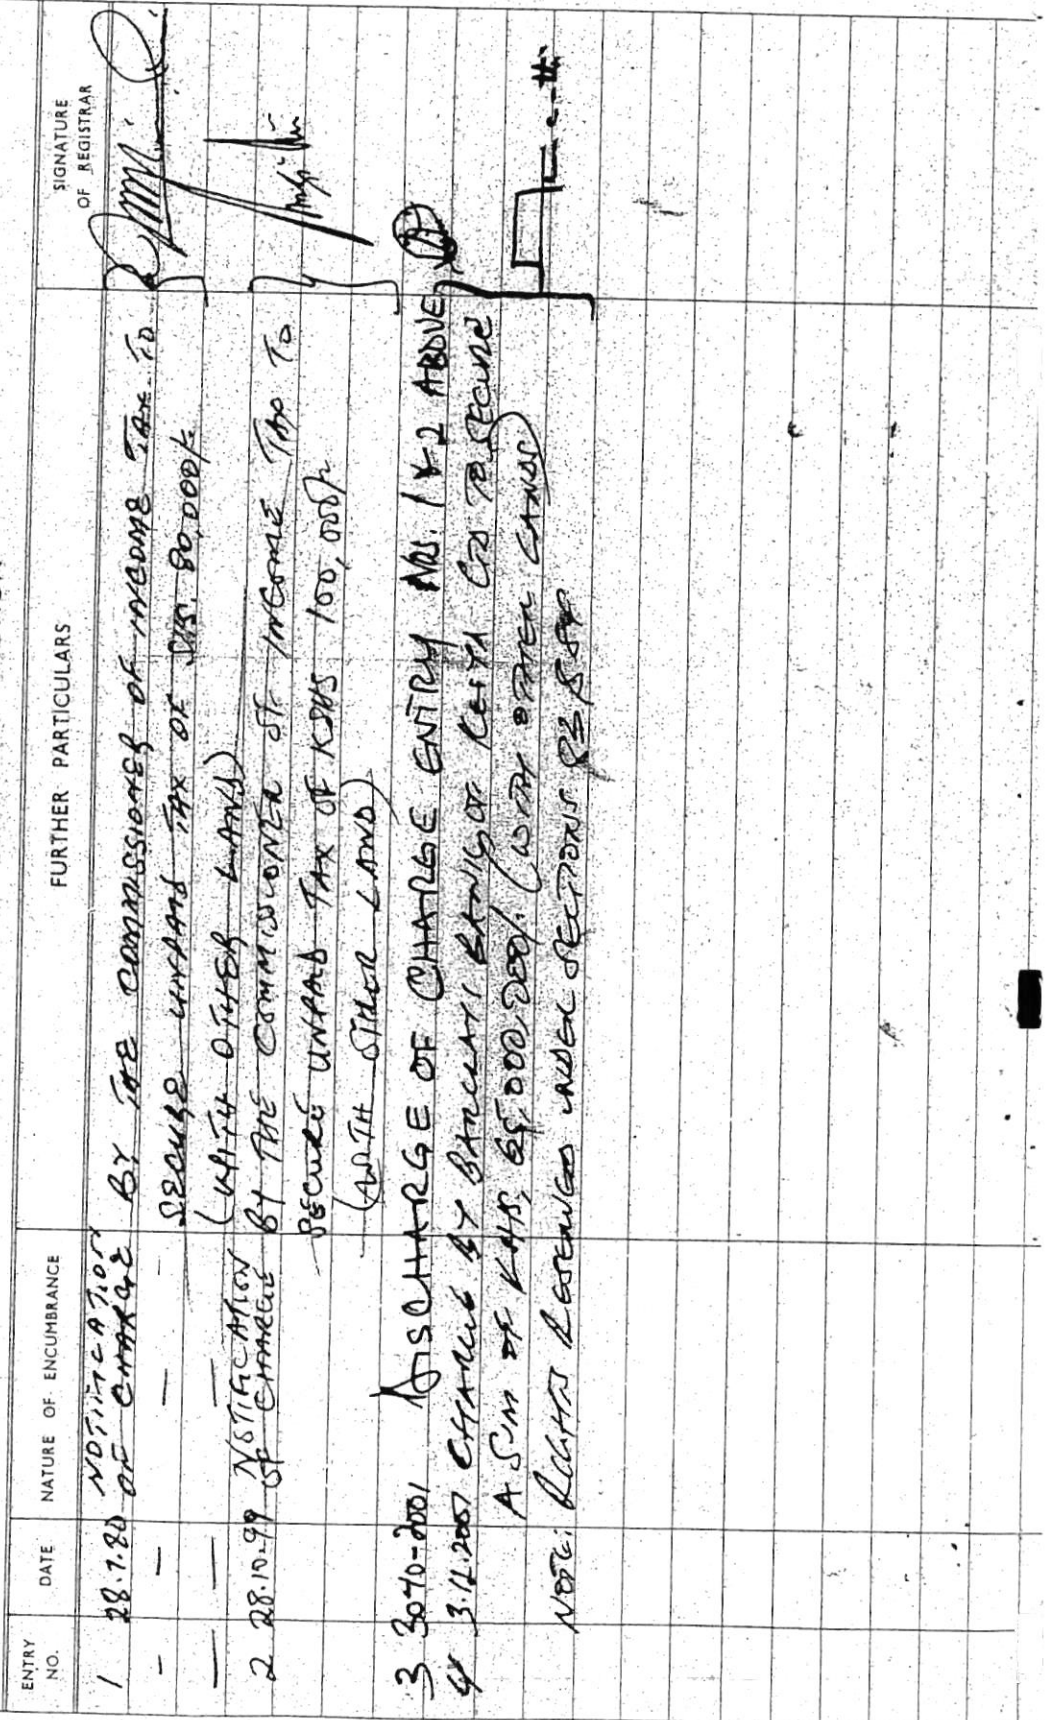 ENTRY NO. DATE NATURE OF ENCUMBRANCE FURTHER PARTICULARS SIGNATURE OF REGISTRAR
1 28.7.80 NOTIFICATION OF CHARGE BY THE COMMISSIONER OF INCOME TAX TO
SECURE UNPAID TAX OF SHS. 80,000/=
(WITH OTHER LAND)
2 28.10.99 NOTIFICATION OF CHARGE BY THE COMMISSIONER OF INCOME TAX TO
SECURE UNPAID TAX OF KSHS 100,000/=
(WITH OTHER LAND)
3 30-10-2001 DISCHARGE OF CHARGE ENTRY NOS. 1 & 2 ABOVE
4 3.12.2001 CHARGE BY BARCLAYS BANK OF KENYA LTD TO SECURE
A SUM OF KSHS, 65,000,000/= (WITH OTHER LANDS)
NOTE: RIGHTS RESERVED UNDER SECTIONS